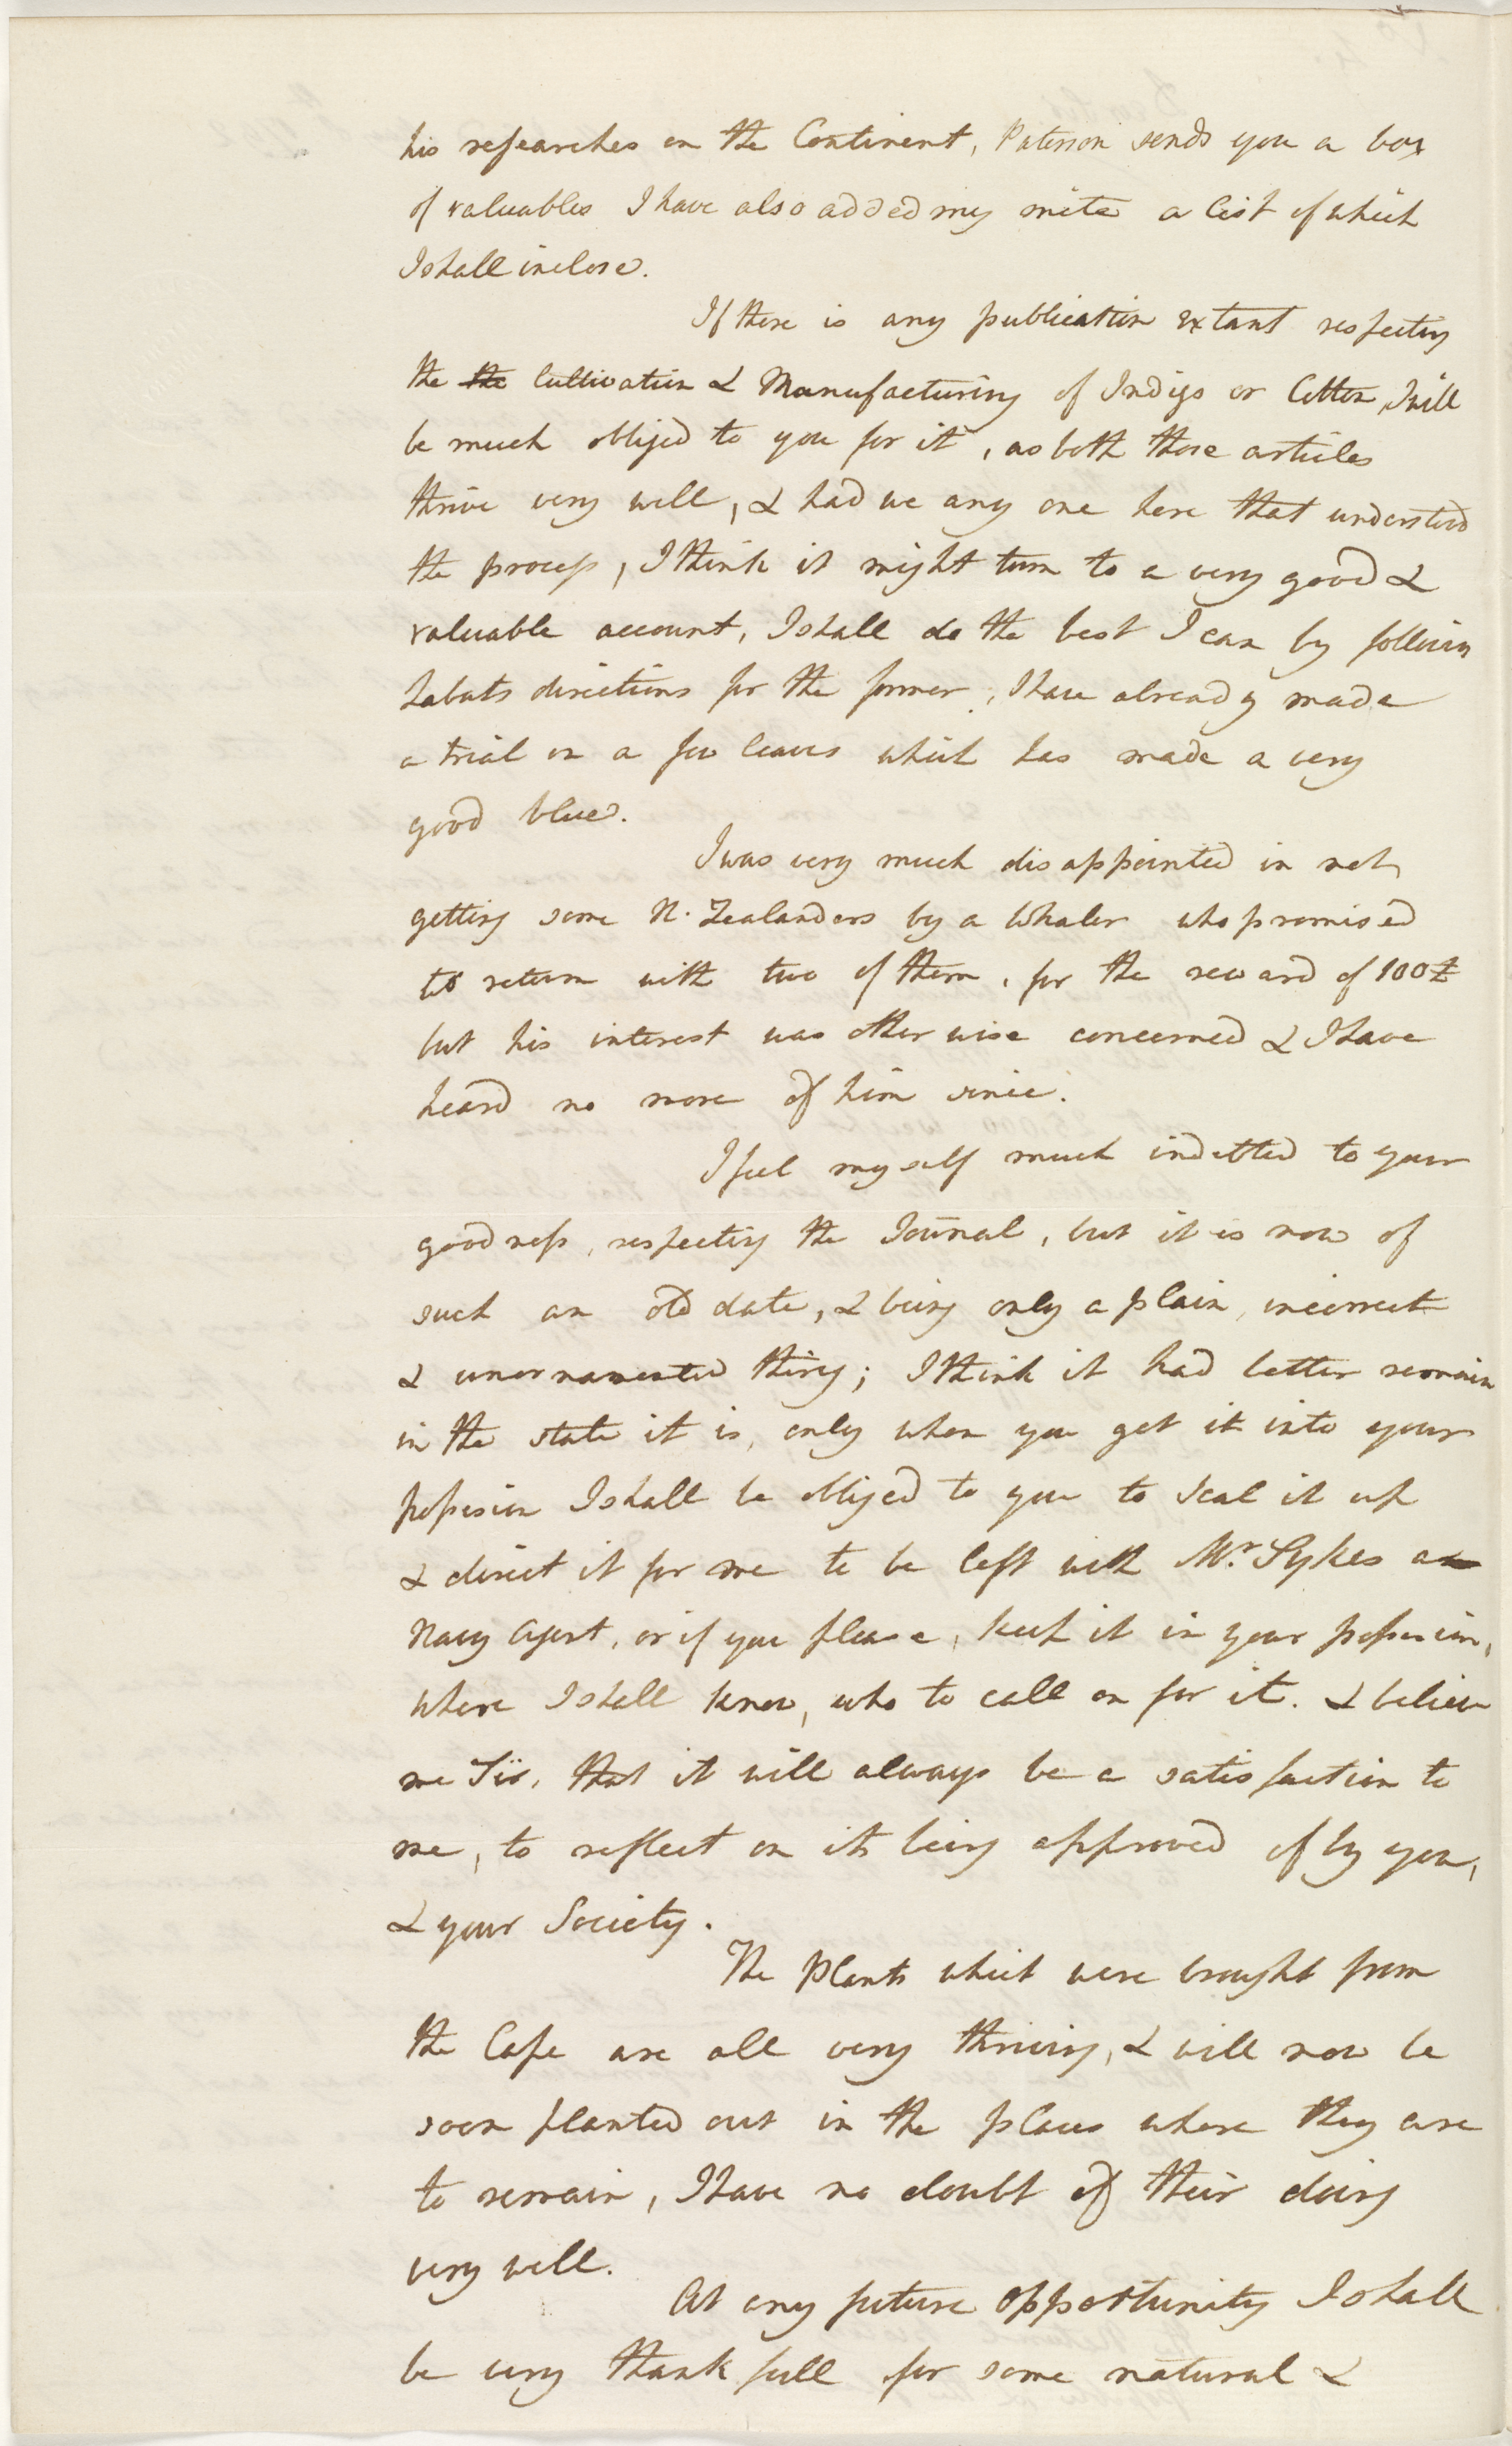 his researches on the Continent, Paterson sends you a box
of valuables I have also added my mite a list of which
I shall inclose.
If there is any publication extant respecting
the the Cultivation & Manufacturing of Indigo or Cotton, I will
be much obliged to you for it, as both those articles
thrive very well, & had we any one here that understood
the process, I think it might turn to a very good &
valuable account, I shall do the best I can by following
Labats directions for the former, I have already made
a trial on a few leaves which has made a very
good blue.
I was very much disappointed in not
getting some N. Zealanders by a Whaler who promised
to return with two of them, for the reward of 100£
but his interest was otherwise concerned & I have
heard no more of him since.
I feel myself much indetted to your
goodness, respecting the Journal, but it is now of
such an old date, & being only a plain, incorrect
& unornamented thing; I think it had better remain
in the state it is, only when you get it into your
possesion I shall be obliged to you to seal it up
& direct it for me to be left with Mr. Sykes
Navy Agent, or if you please, keep it in your possesion,
where I shall know, who to call on for it. & believe
me Sir, that it will always be a satisfaction to
me, to reflect on its being approved of by you,
& your Society.
The Plants which were brought from
the Cape are all very thriving, & will now be
soon planted out in the places where they are
to remain, I have no doubt of their doing
very well.
At any future opportunity I shall
be very thankfull for some natural &